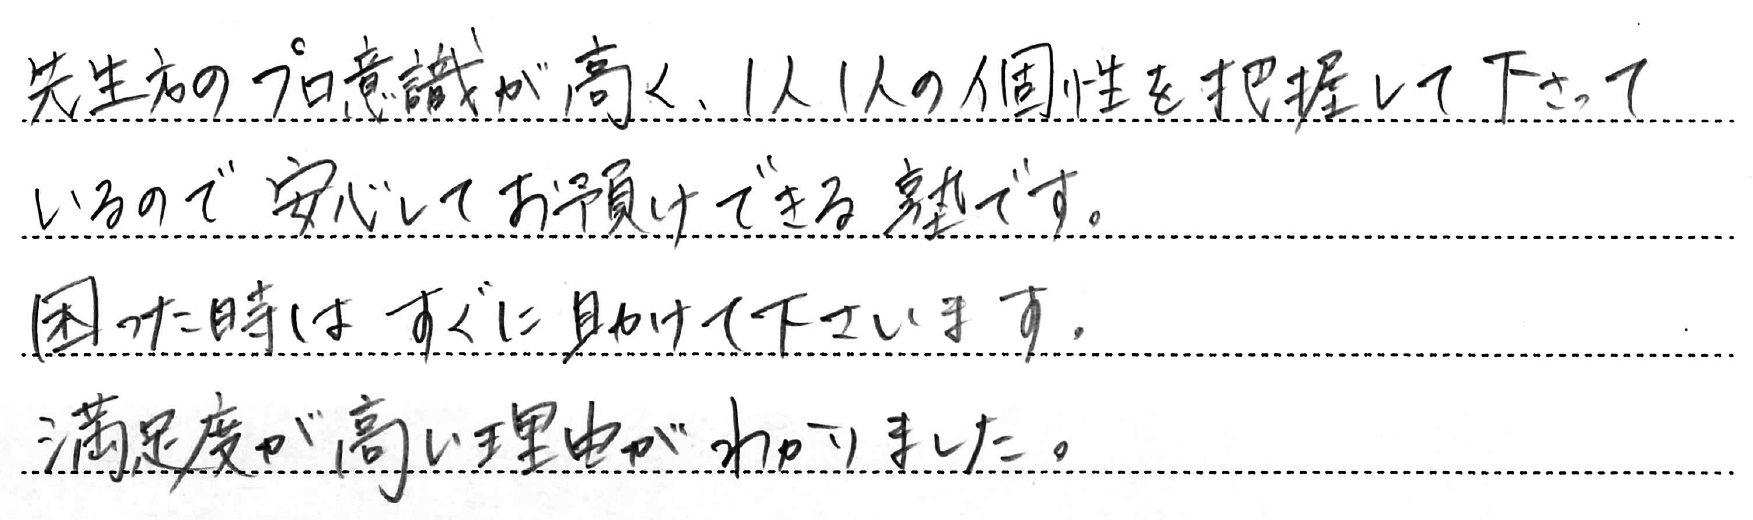 先生方のプロ意識が高く、1人1人の個性を把握して下さって
いるので安心してお預けできる塾です。
困った時はすぐに助けて下さいます。
満足度が高い理由がわかりました。